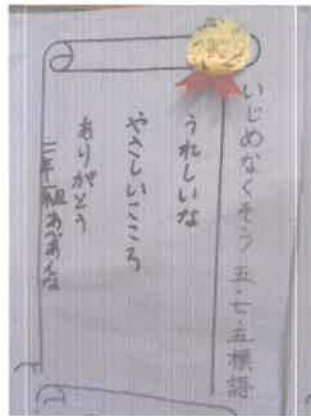 いじめなくそう 五・七・五標語
うれしいな
やさしいこころ
ありがとう
二年一組 あべあんな